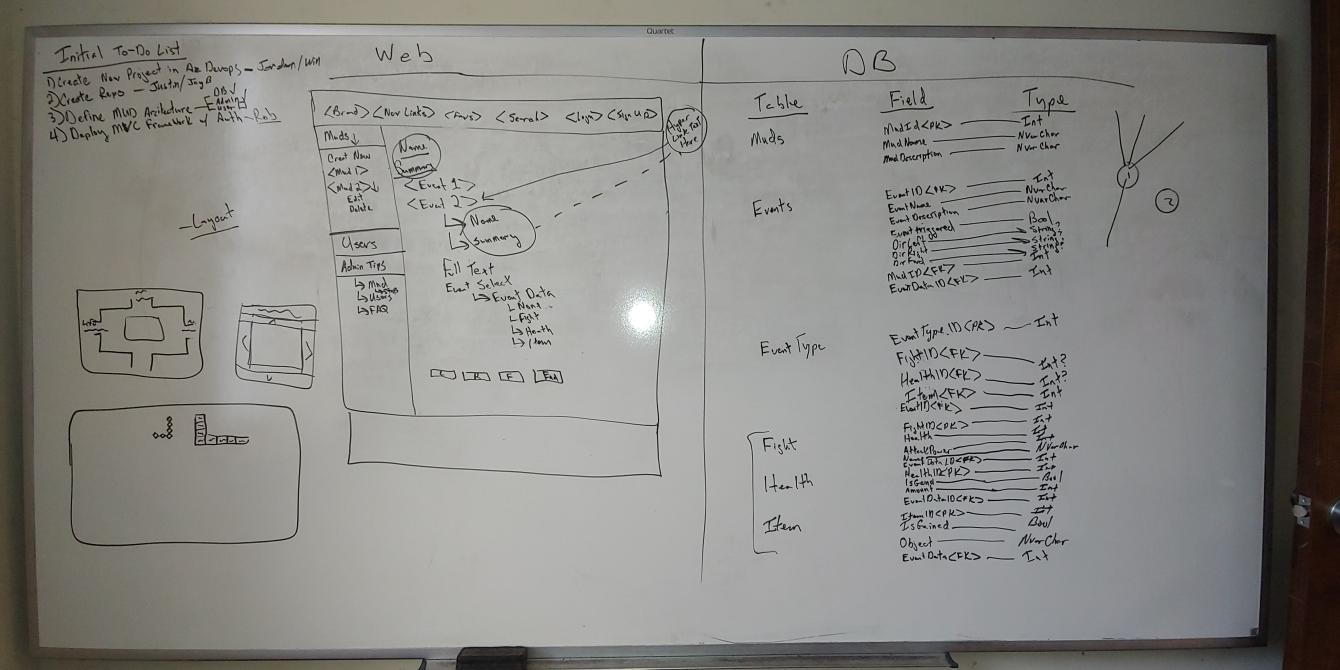 Quartet
Initial To-Do List
1) Create New Project in Az Devops - Jordan/Win
2) Create Repo - Justin/Jay B
3) Define MUD Architecture - [DB ✓
Admin ✓
User
4) Deploy MVC Framework w/ Auth - Rob
Layout
Web
<Brand> <Nav Links> <Favs> <Search> <Login> <Sign Up>
Muds ↓
Creat New
<Mud 1>
<Mud 2> ↓
Edit
Delete
Users
Admin Tips
↳ Mud
↳ Users
↳ FAQ
Name
Summary
<Event 1>
<Event 2>
↳ Name
↳ Summary
Full Text
Event Select
↳ Event Data
↳ None
↳ Fight
↳ Health
↳ Item
L R F End
Hyper Link Text Here
DB
Table Field Type
Muds
MudId <PK> — Int
Mud Name — NVarChar
Mud Description — NVarChar
Events
EventID <PK> — Int
Event Name — NVarChar
Event Description — NVarChar
Event triggered — Bool
Dir Left — String?
Dir Right — String?
Dir Fwd — String?
MudID <FK> — Int
EventDataID <FK> — Int
Event Type
EventTypeID <PK> — Int
FightID <FK> — Int?
HealthID <FK> — Int?
ItemID <FK> — Int
EventID <FK> — Int
Fight
FightID <PK> — Int
Health — Int
AttackPower — Int
Name — NVarChar
EventDataID <FK> — Int
Health
HealthID <PK> — Int
IsGend — Bool
Amount — Int
EventDataID <FK> — Int
Item
ItemID <PK> — Int
IsGained — Bool
Object — NVarChar
EventData <FK> — Int
1
2